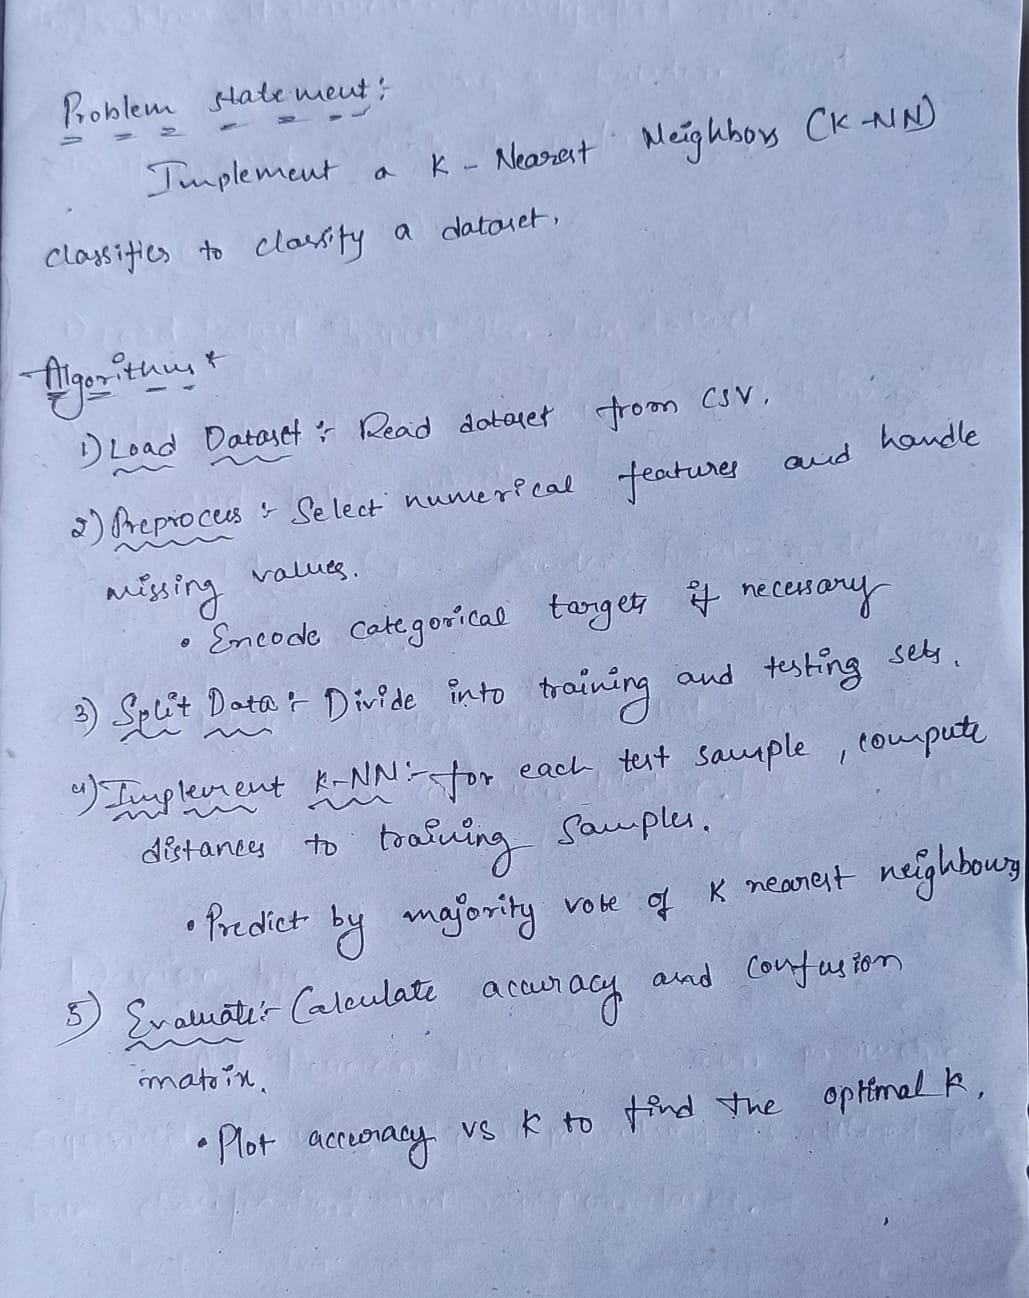 Problem statement :-
Implement a K - Nearest Neighbors (K-NN)
classifies to classify a dataset.
Algorithm :-
1) Load Dataset :- Read dataset from CSV.
2) Preprocess :- Select numerical features and handle
missing values.
• Encode categorical targets if necessary
3) Split Data :- Divide into training and testing sets.
4) Implement K-NN :- for each test sample, compute
distances to training samples.
• Predict by majority vote of K nearest neighbours
5) Evaluate :- Calculate accuracy and confusion
matrix.
• Plot accuracy vs K to find the optimal K.